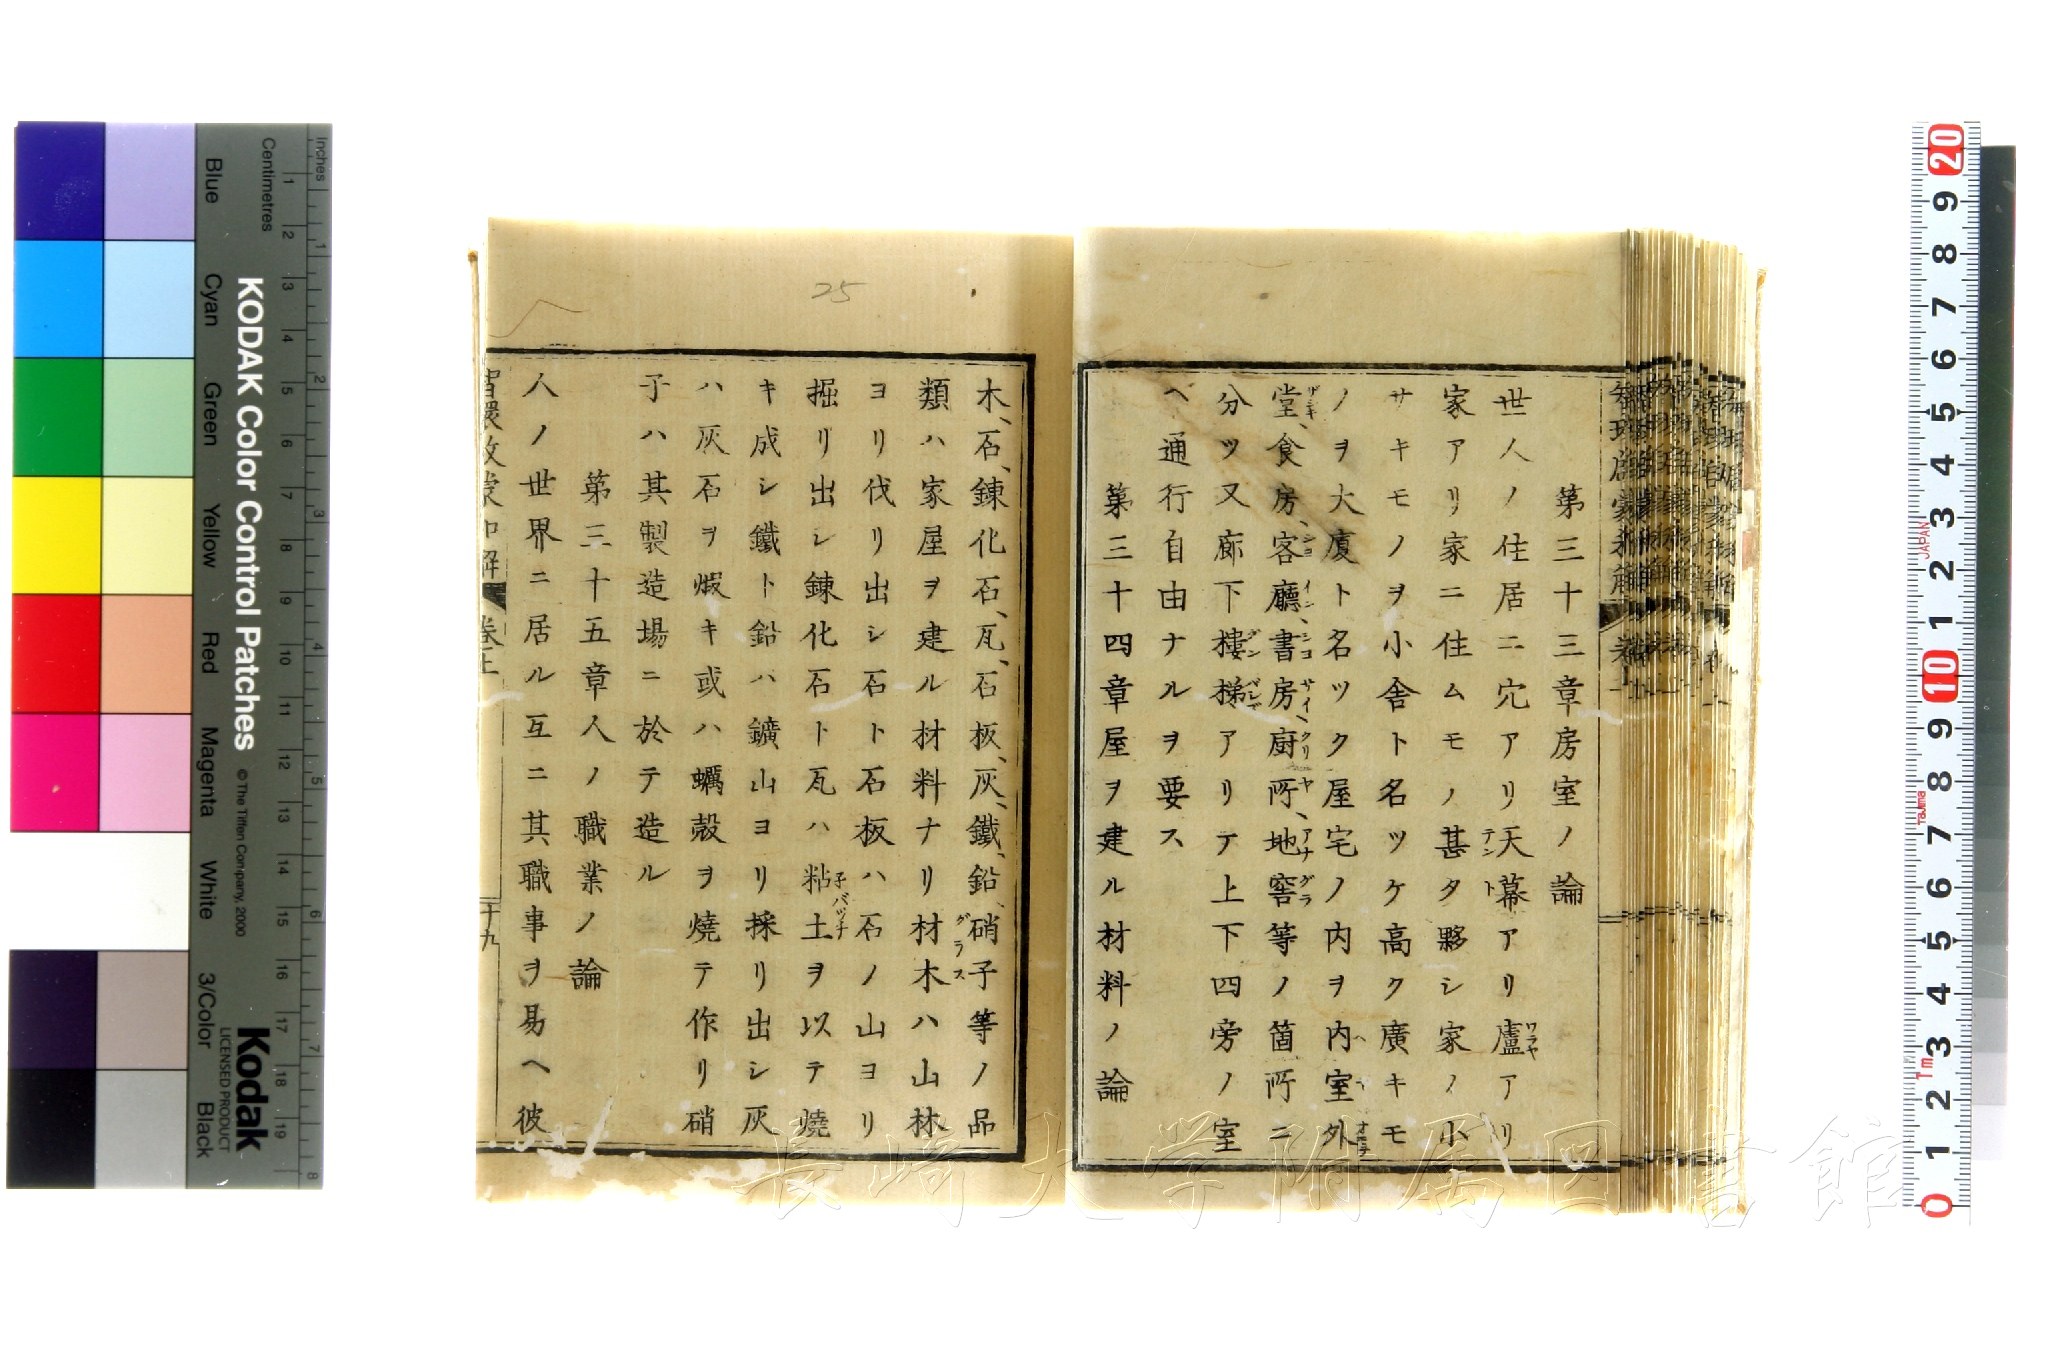 第三十三章房室ノ論
世人ノ住居ニ穴アリ天幕アリ廬アリ
テント
ワラヤ
家アリ家ニ住ムモノ甚タ夥シ家ノ小
サキモノヲ小舎ト名ツケ高ク廣キモ
ノヲ大廈ト名ツク屋宅ノ内ヲ内室外
堂、食房、客廳、書房、厨所、地窖等ノ箇所ニ
分ツ又廊下樓梯アリテ上下四旁ノ室
ヘ通行自由ナルヲ要ス
第三十四章屋ヲ建ル材料ノ論
木、石、錬化石、瓦、石板、灰、鐵、鉛、硝子等ノ品
グラス
類ハ家屋ヲ建ル材料ナリ材木ハ山林
ヨリ伐リ出シ石ト石板ハ石ノ山ヨリ
掘リ出シ錬化石ト瓦ハ粘土ヲ以テ燒
キ成シ鐵ト鉛ハ鑛山ヨリ採リ出シ灰
ハ灰石ヲ煆キ或ハ蠣殻ヲ燒テ作リ硝
子ハ其製造場ニ於テ造ル
第三十五章人ノ職業ノ論
人ノ世界ニ居ル互ニ其職事ヲ易ヘ彼
卷上
十九
25
長崎大学附属図書館
KODAK Color Control Patches
© The Tiffen Company, 2000
Kodak
LICENSED PRODUCT
Inches
Centimetres
Blue
Cyan
Green
Yellow
Red
Magenta
White
3/Color
Black
1 2 3 4 5 6 7 8 9 10 11 12 13 14 15 16 17 18 19
1 2 3 4 5 6 7 8
20 9 8 7 6 5 4 3 2 1 10 9 8 7 6 5 4 3 2 1 0
JAPAN
Tajima
Tm